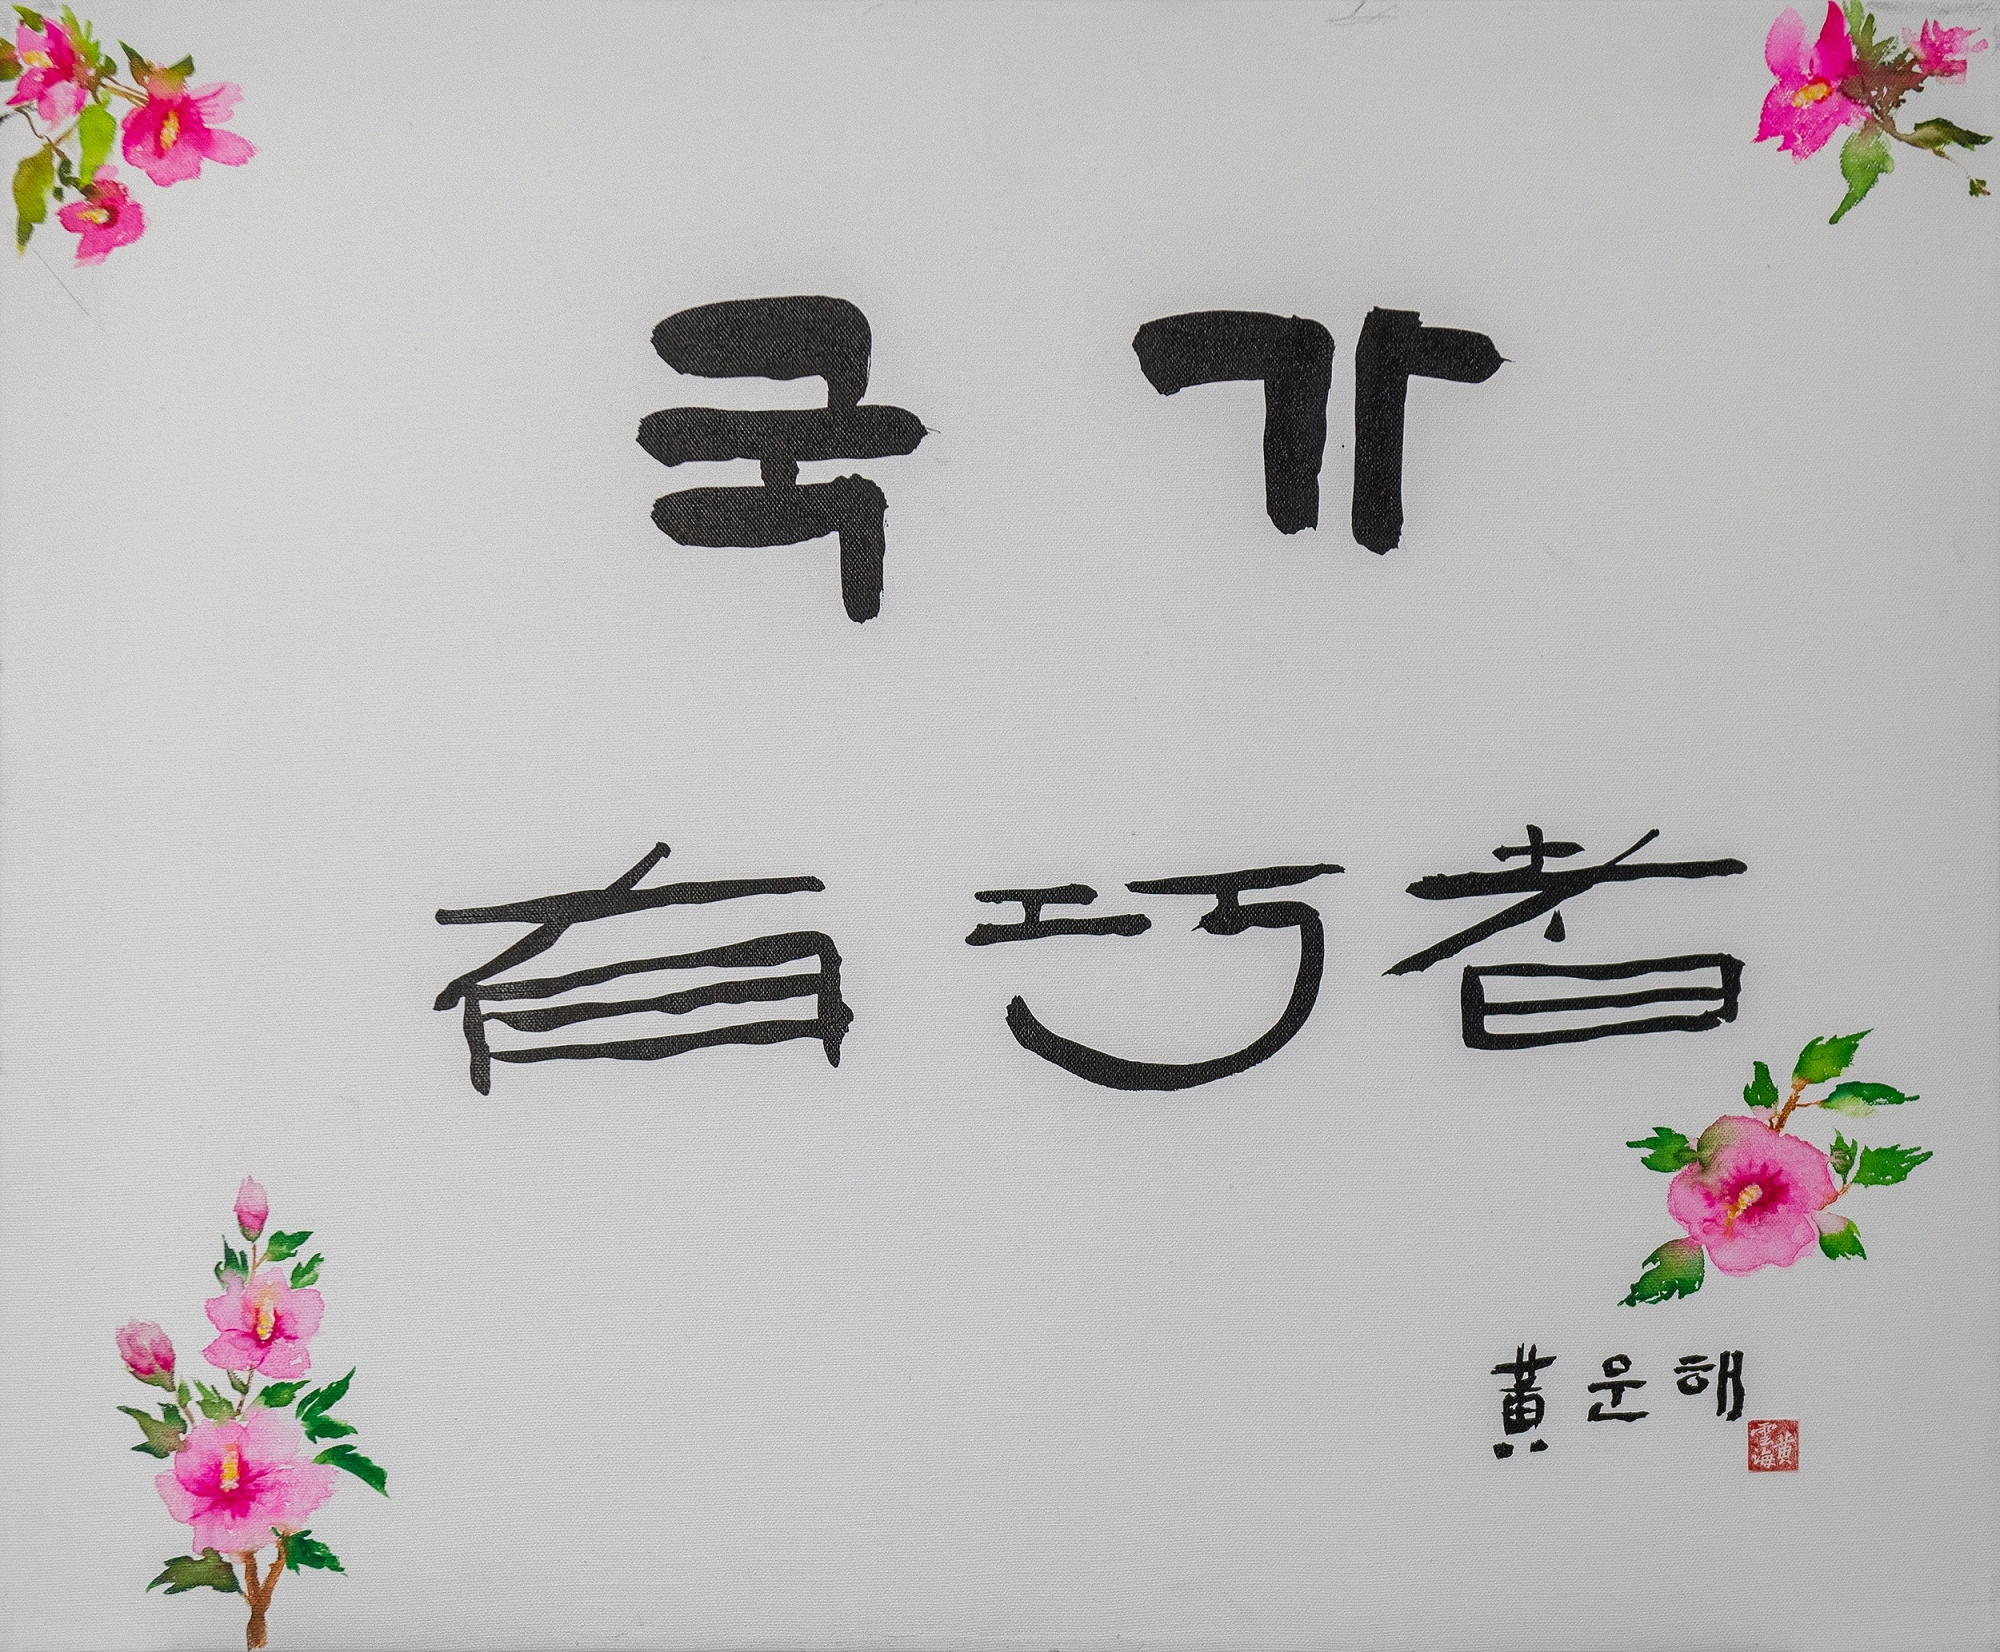 국가
有巧者
黃운해
黃雲海